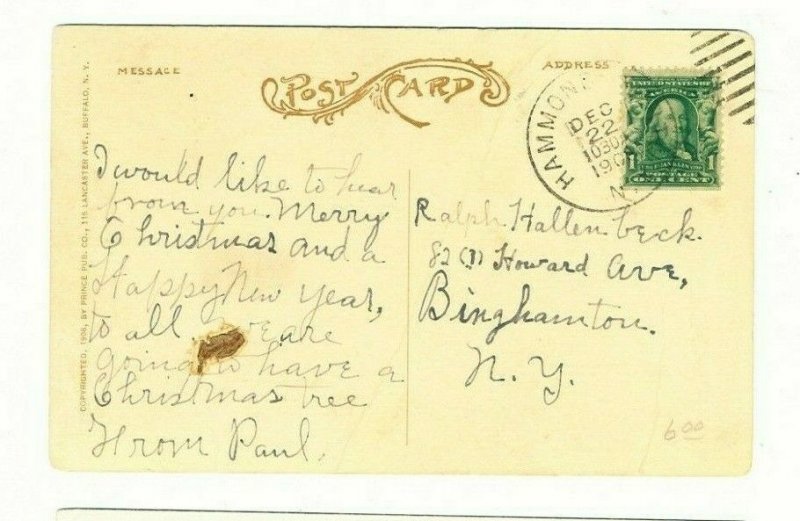 MESSAGE
POST CARD
ADDRESS
COPYRIGHTED, 1908, BY PRINCE PUB. CO., 115 LANCASTER AVE., BUFFALO, N. Y.
HAMMON
DEC
22
1030
190
N.
UNITED STATES OF
AMERICA
1 1
POSTAGE
ONE CENT
I would like to hear
from you. Merry
Christmas and a
Happy New Year,
to all we are
going to have a
Christmas tree
From Paul.
Ralph Hallenbeck.
82 Howard Ave,
Binghamton.
N. Y.
6.00